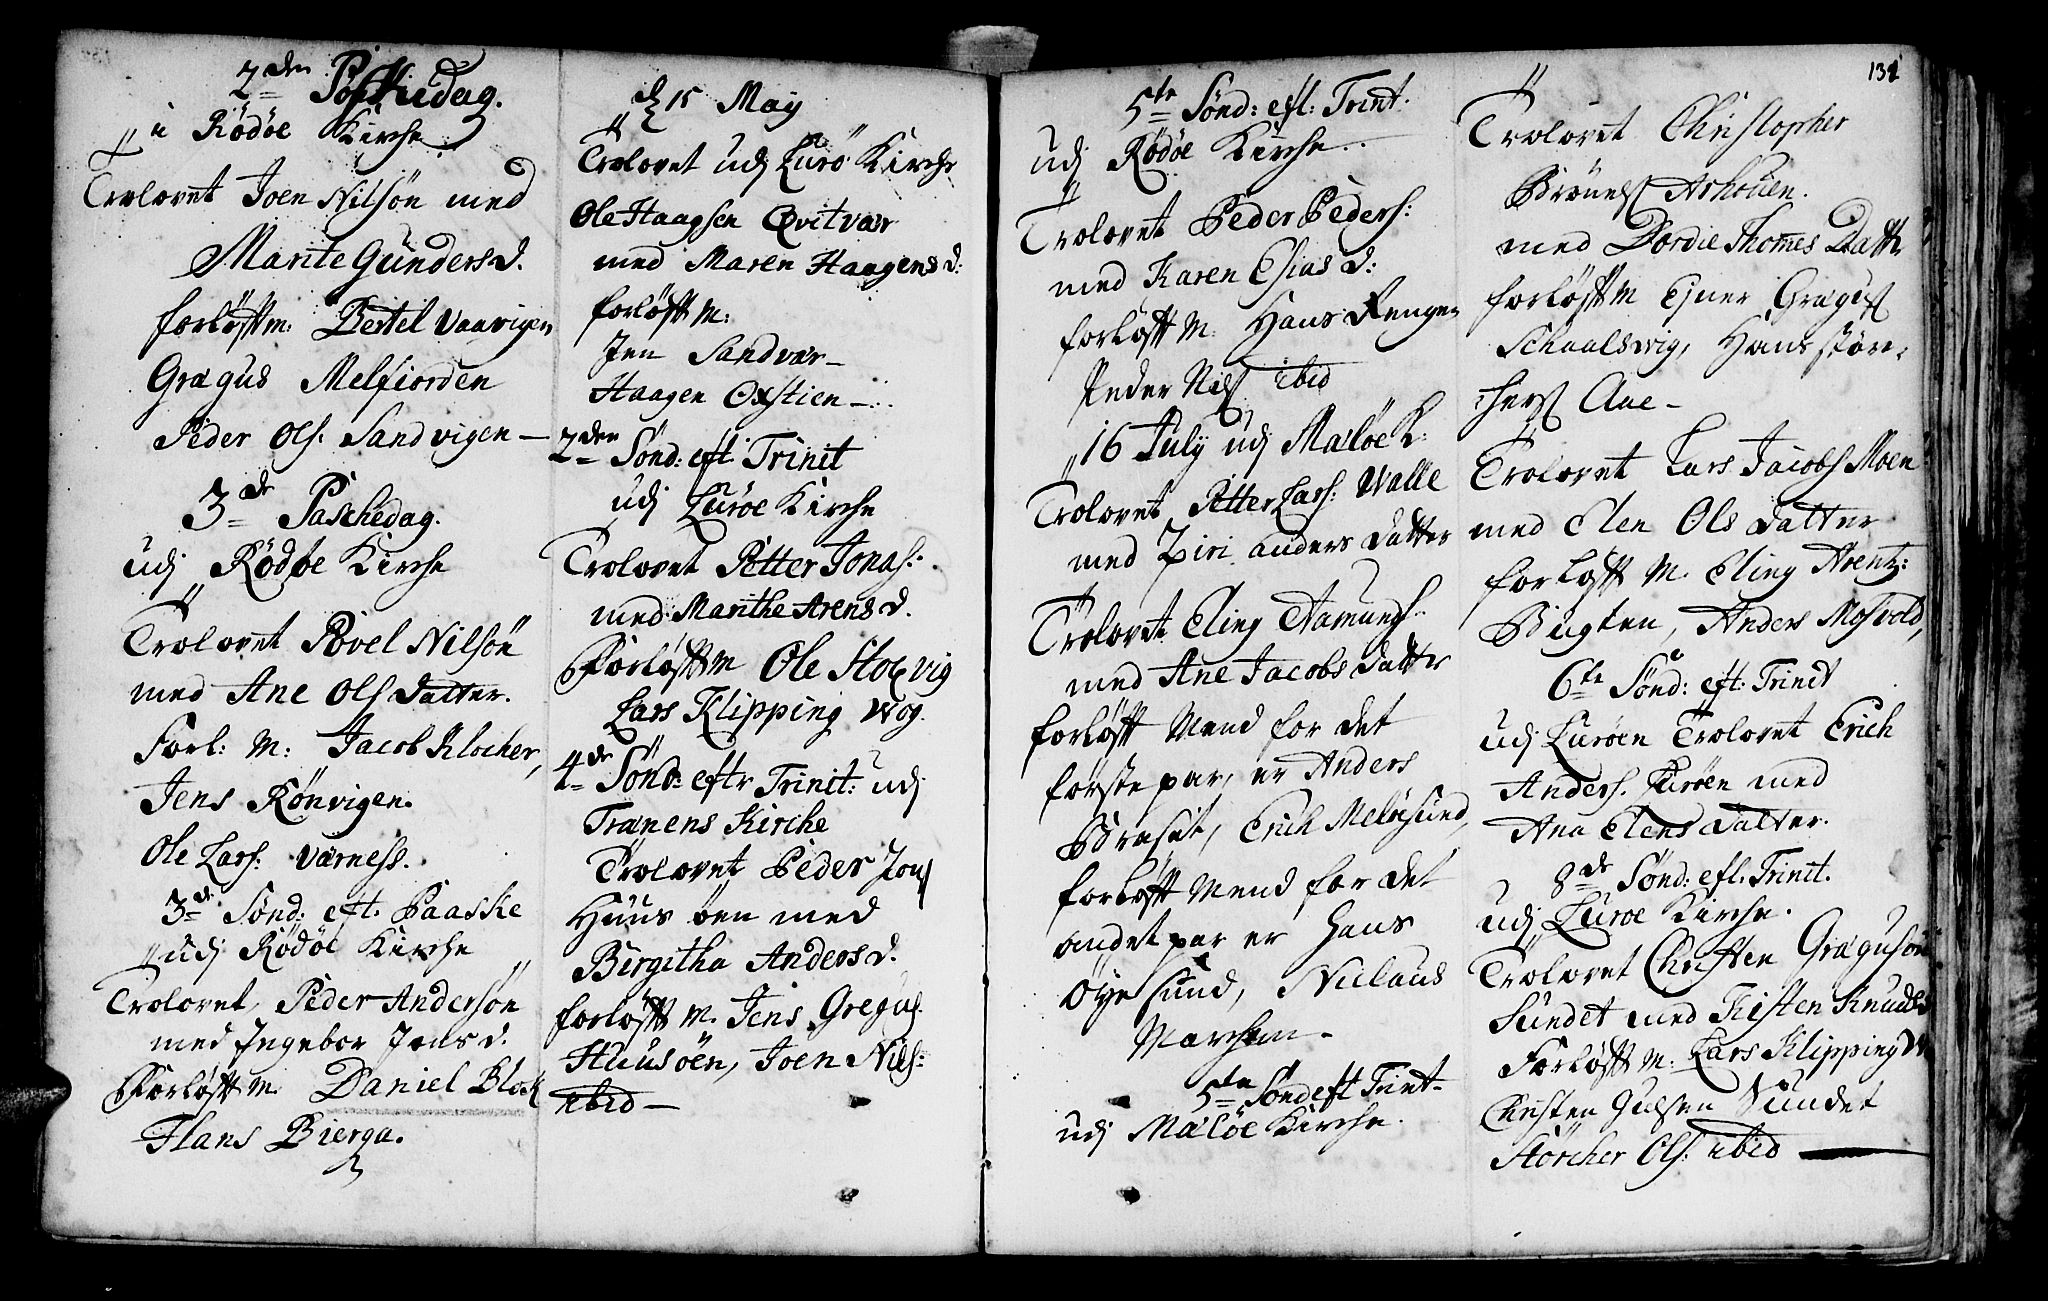 2den Paskedag.
i Rödöe Kirche
Trolovet Joen Nilsön med
Marite Gundersd.
forløfftm: Bertel Vaavigen
Grægus Melfiorden
Peder Ols: Sandvigen —
3de Paschedag.
udj Rödöe Kirche
Trolovet Povel Nilsön
med Ane Ols datter.
Forl: M: Jacob Klocker,
Jens Rönvigen.
Ole Lars: Værness.
3de Sønd: eft. Paaske
udj Rödöe Kirche
Trolovet Peder Andersön
med Ingebor Jensd.
Forløfft M. Daniel Block
Hans Bierga.
d 15 May
Trolovet udj Lurö Kirche
Ole Haagsen Qvitvær
med Maren Haagensd:
forløfft M:
Jen Sandvær —
Haagen Oxstien —
2den Sönd: eft Trinit
udj Luröe Kirche
Trolovet Petter Jonas:
med Marithe Arensd.
Forløfft M Ole Stocvig
Lars Klipping Wog.
4de Sönd: eftr Trinit: udj
Trænens Kirche
Trolovet Peder Jons
Huusöen med
Birgitha Andersd.
forløfft M. Jens Gregus.
Huusöen, Joen Nils:
ibid —
131
5te Sönd: eft: Trint.
udj Rödöe Kirche.
Trolovet Peder Peders:
med Karen Esiasd:
forløfft M: Hans Rengen
Peder Nils ibid
16 July udj Mælöe K:
Trolovet Petter Lars: Walle
med Ziri anders datter
Trolovet Eling Aamunds
med Ane Jacobs datter
forløfft Mænd for det
første par, er Anders
Bræsit, Erich Melösund,
forløfft Mend for det
andet par er Hans
Öyesund, Niclaus
5te Sönd eft Trint.
udj Mælöe Kirche.
Trolovet Christopher
Arhouen.
med Dordie Thomes Datt
forløfft M Ejner Grægus
Schaalsvig, Hans Störc:
hers Aae —
Trolovet Lars Jacobs Moen
med Elen Ols datter
forløfft M. Eling Arentz:
Bugten, Anders Mosvold,
6te Sönd: eft: Trinit
udj Luröen Trolovet Erich
Anders. Luröen med
Ana Elens datter.
8de Sönd: eft: Trinit.
udj Luröe Kirche.
Trolovet Christen Grægusön
Sundet med Kisten Knuds
Forløfft M: Lars Klipping W
Christen Sundet
Störcher Ols: ibid —